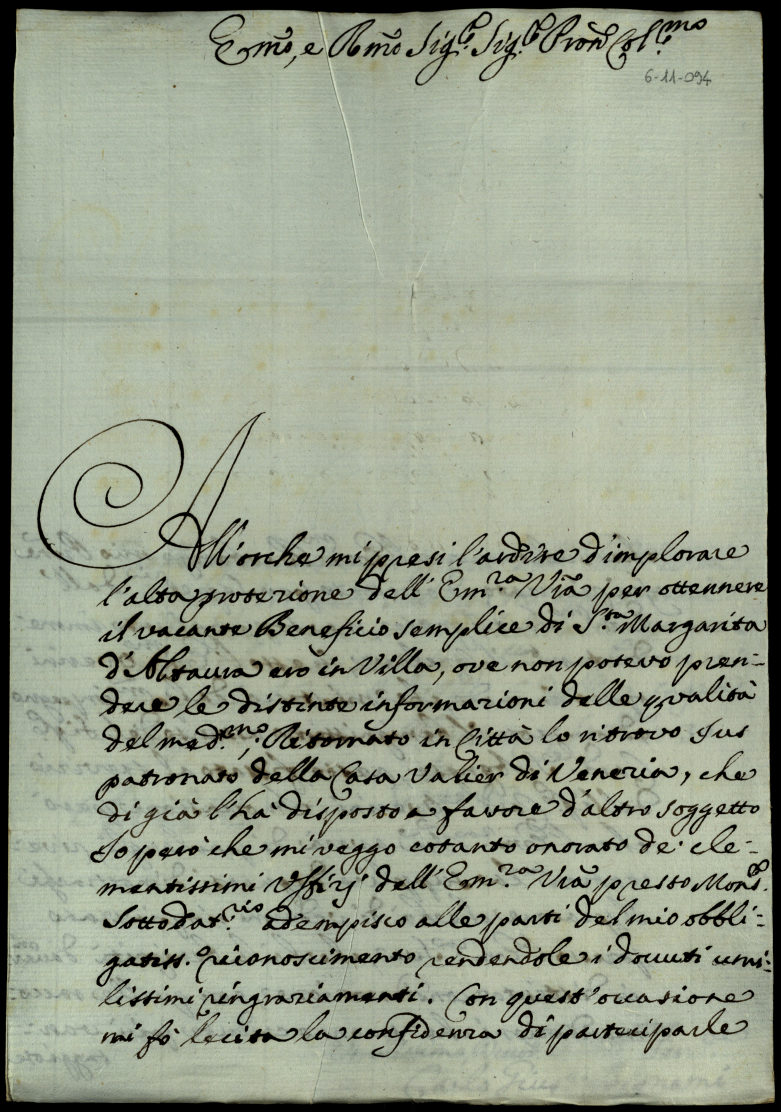 Em̃o, e Rm̃o Sig.re Sig.re Pron̄ Col.mo
6-11-094
Allorche mi presi l'ardire d'implorare
l'alta protezione dell' Em.ra Vr̃a per ottennere
il vacante Beneficio semplice di S.ta Margarita
d'Altaura ero in Villa, ove non potevo pren-
dere le distinte informazioni delle qualità
del med.mo; Ritornato in Città lo ritrovo Jus
patronato della Casa Valier di Venezia, che
di già l'hà disposto a favore d'altro soggetto
Io però che mi veggo cotanto onorato de' cle-
mentissimi Uffizj dell' Em.ra Vr̃a presso Mons.r
Sottodat.rio adempisco alle parti del mio obbli-
gatiss.o riconoscimento rendendole i dovuti umi-
lissimi ringraziamenti. Con quest' occasione
mi fò lecita la confidenza di parteciparle